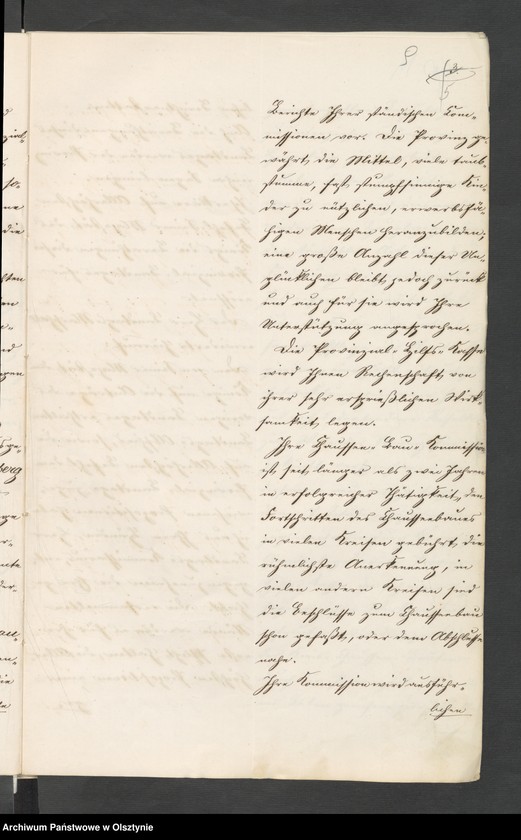 5
Berichte Ihrer ständischen Com-
missionen vor. Die Provinz ge-
währt die Mittel, viele taub-
stumme, fast stumpfsinnige Kin-
der zu nützlichen, erwerbsfä-
higen Menschen heranzubilden,
eine große Anzahl dieser Un-
glücklichen bleibt jedoch zurück
und auch für sie wird Ihre
Unterstützung angesprochen.
Die Provinzial-Hilfs-Kasse
wird Ihnen Rechenschaft von
ihrer sehr ersprießlichen Wirk-
samkeit legen.
Ihre Chaussee-Bau-Kommission
ist seit länger als zwei Jahren
in erfolgreicher Thätigkeit, den
Fortschritten des Chausseebaues
in vielen Kreisen gebührt die
rühmlichste Anerkennung, in
vielen andern Kreisen sind
die Beschlüsse zum Chausseebau
schon gefaßt, oder dem Abschlusse
nahe.
Ihre Kommission wird ausführ-
lichen
Archiwum Państwowe w Olsztynie